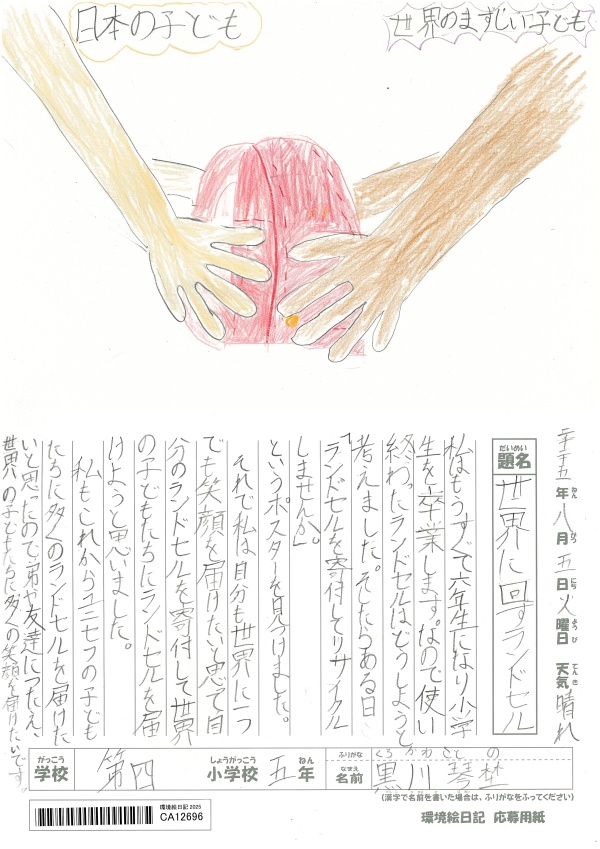 日本の子ども
世界のまずしい子ども
二千二十五年八月五日火曜日 天気晴れ
ねん がつ にち ようび てんき
だいめい
題名 世界に回すランドセル
私はもうすぐで六年生になり小学
生を卒業します。なので使い
終わったランドセルはどうしようと
考えました。そしたらある日
「ランドセルを寄付してリサイクル
しませんか。」
というポスターを見つけました。
それで私は自分も世界に一つ
でも笑顔を届けたいと思って自
分のランドセルを寄付して世界
の子どもたちにランドセルを届
けようと思いました。
私もこれからユニセフの子ども
たちに多くのランドセルを届けた
いと思ったので弟や友達につたえ、
世界の子どもたちに多くの笑顔を届けたいです。
がっこう しょうがっこう ねん ふりがな くろかわ ことの
学校 第四 小学校 五年 なまえ 名前 黒川 琴埜
(漢字で名前を書いた場合は、ふりがなをふってください)
環境絵日記 2025
CA12696
環境絵日記 応募用紙